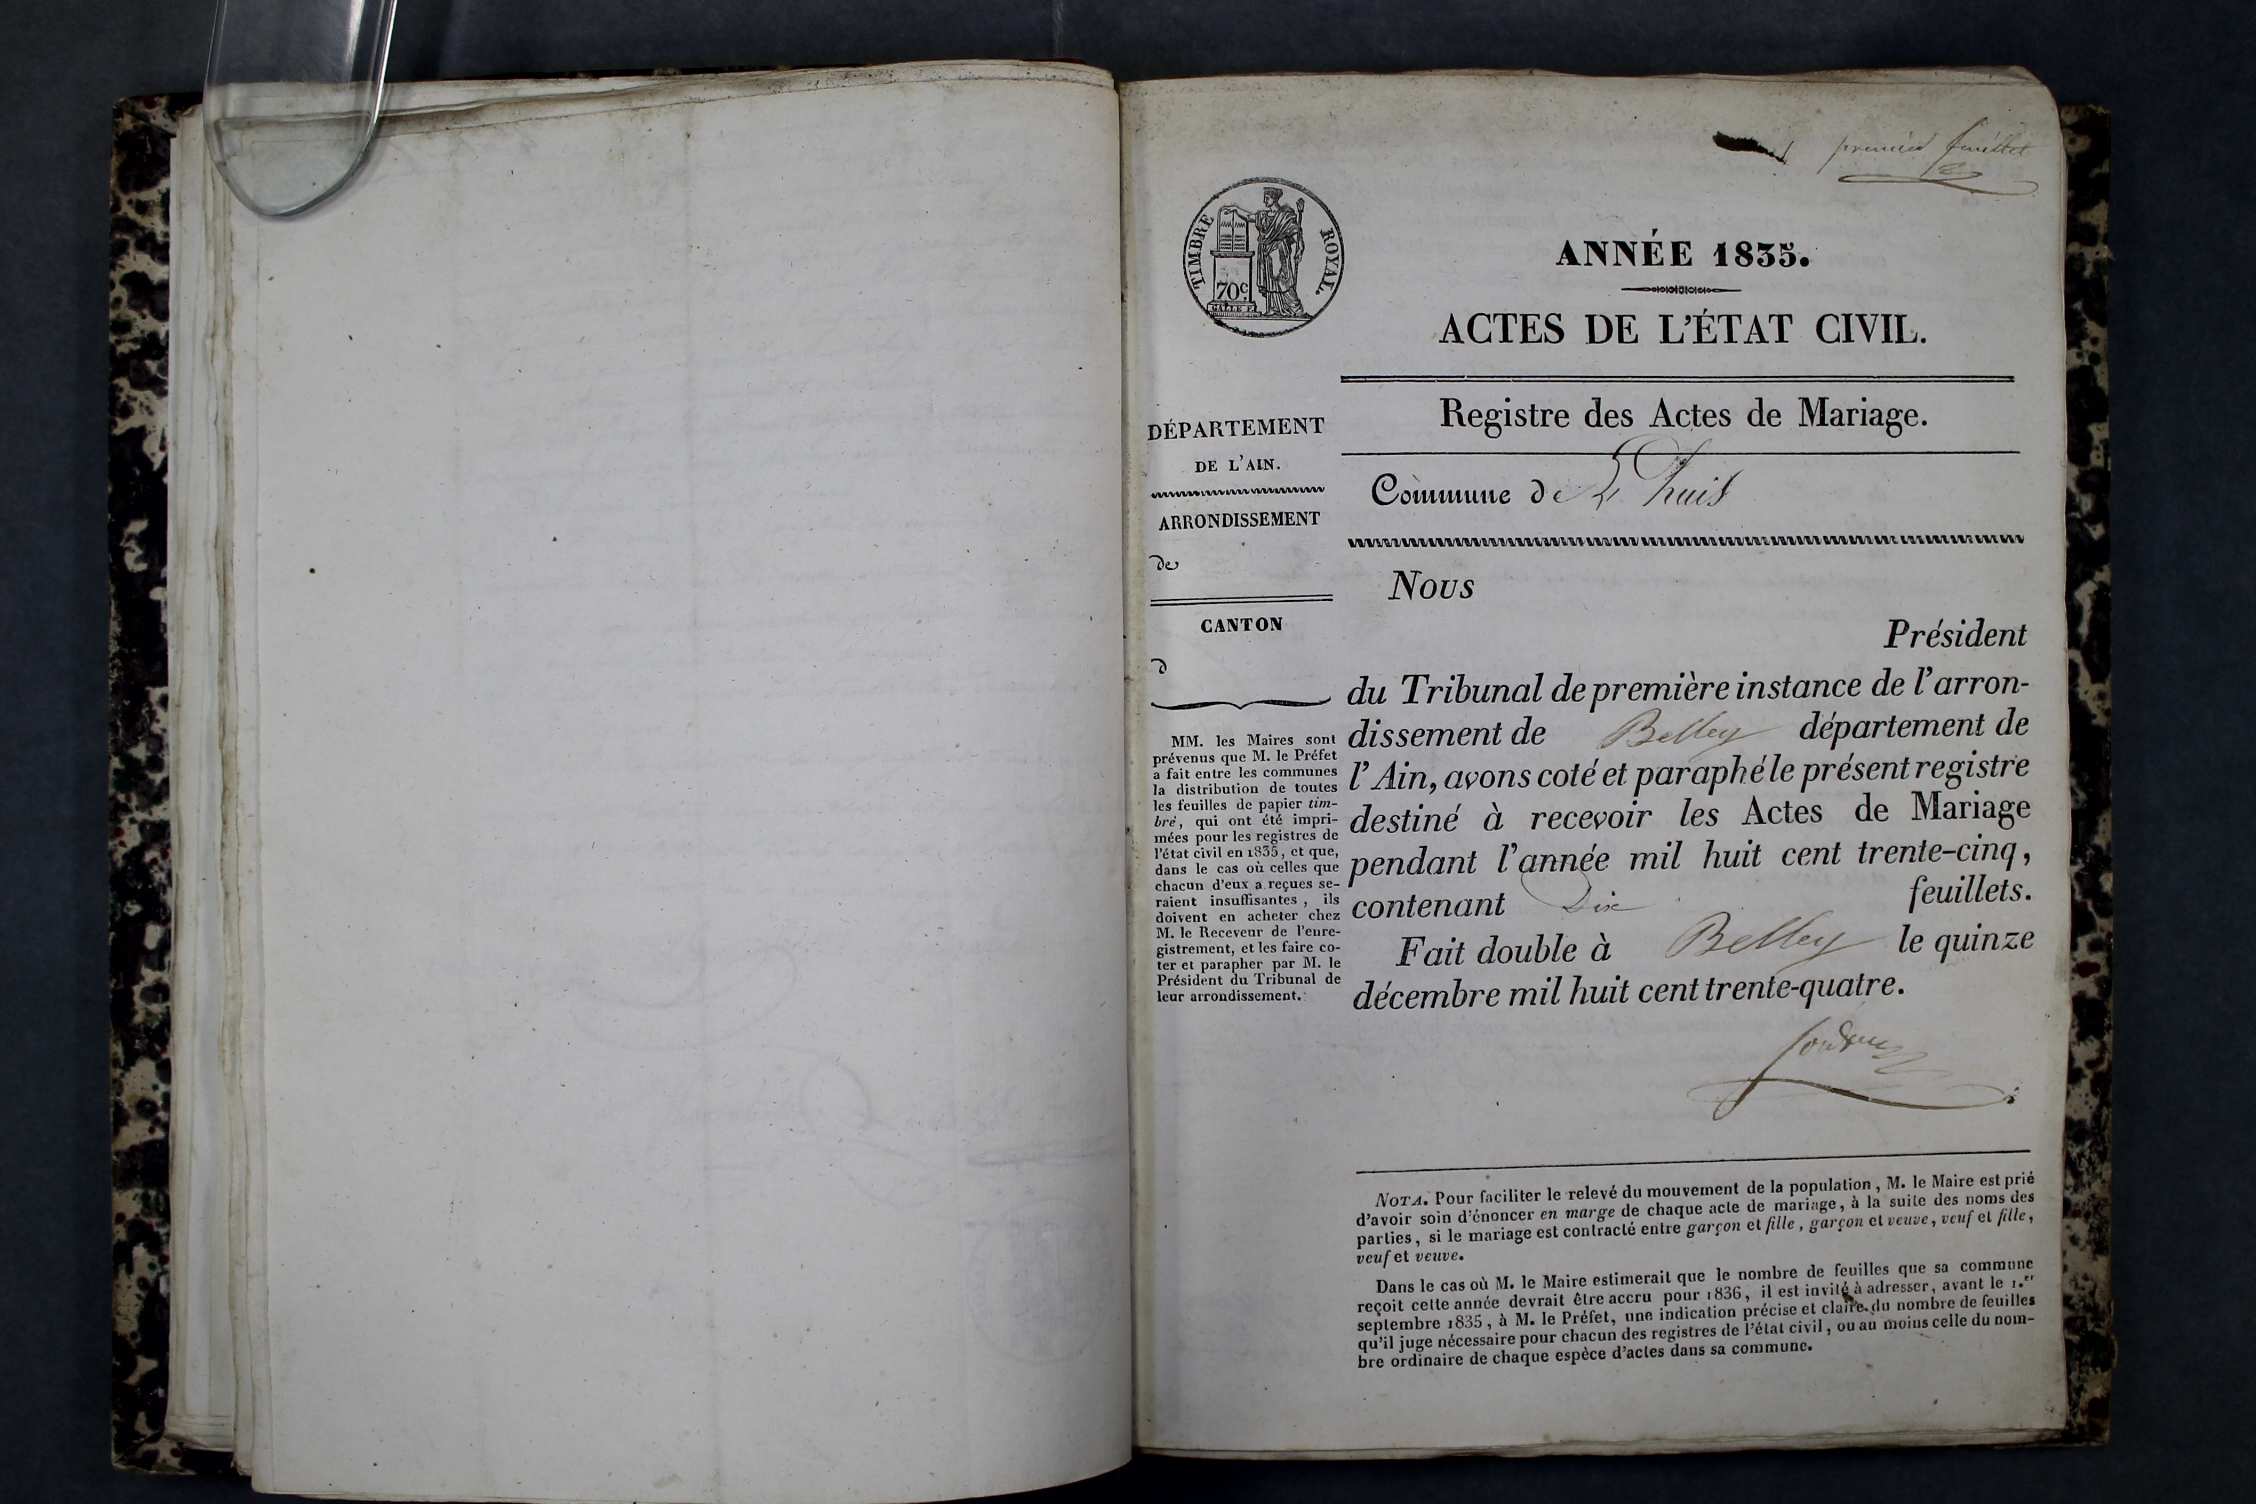 premier feuillet
TIMBRE ROYAL.
70c.
ANNÉE 1835.
ACTES DE L'ÉTAT CIVIL.
Registre des Actes de Mariage.
Commune de Lhuis
DÉPARTEMENT
DE L'AIN.
ARRONDISSEMENT
de
CANTON
d
MM. les Maires sont
prévenus que M. le Préfet
a fait entre les communes
la distribution de toutes
les feuilles de papier tim-
bré, qui ont été impri-
mées pour les registres de
l'état civil en 1835, et que,
dans le cas où celles que
chacun d'eux a reçues se-
raient insuffisantes, ils
doivent en acheter chez
M. le Receveur de l'enre-
gistrement, et les faire co-
ter et parapher par M. le
Président du Tribunal de
leur arrondissement.
Nous
Président
du Tribunal de première instance de l'arron-
dissement de Belley département de
l'Ain, avons coté et paraphé le présent registre
destiné à recevoir les Actes de Mariage
pendant l'année mil huit cent trente-cinq,
contenant Dix feuillets.
Fait double à Belley le quinze
décembre mil huit cent trente-quatre.
NOTA. Pour faciliter le relevé du mouvement de la population, M. le Maire est prié
d'avoir soin d'énoncer en marge de chaque acte de mariage, à la suite des noms des
parties, si le mariage est contracté entre garçon et fille, garçon et veuve, veuf et fille,
veuf et veuve.
Dans le cas où M. le Maire estimerait que le nombre de feuilles que sa commune
reçoit cette année devrait être accru pour 1836, il est invité à adresser, avant le 1.er
septembre 1835, à M. le Préfet, une indication précise et claire du nombre de feuilles
qu'il juge nécessaire pour chacun des registres de l'état civil, ou au moins celle du nom-
bre ordinaire de chaque espèce d'actes dans sa commune.